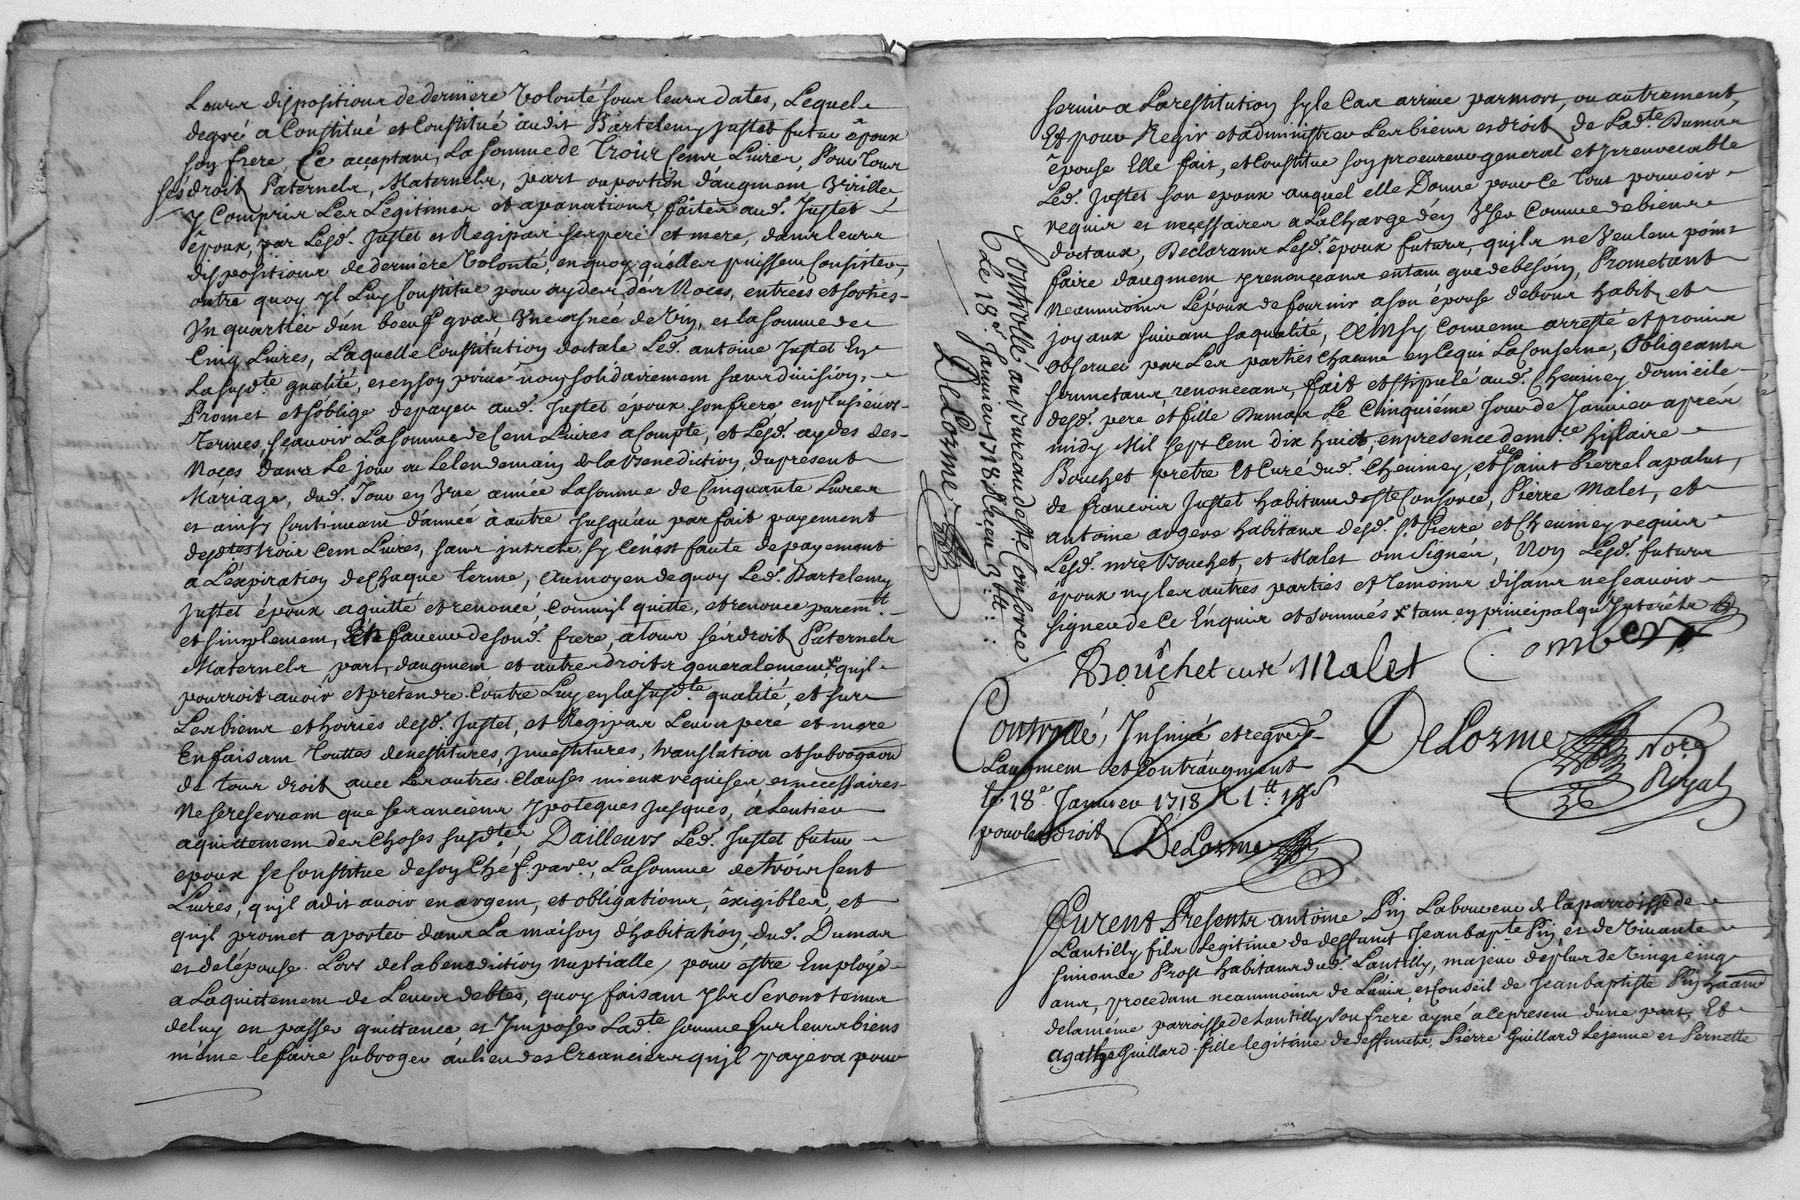 Leurs dispositions de derniere Volonté sous leurs dates, Lequel
degré a Constitué et Constitué audit Bartelemy Justet futur époux
son frere Ce acceptant, La somme de Trois Cens Livres, Pour Tous
ses droits Paternels, Maternels, part ou portion d'augment Virille
y Compris Les Legitimes et apanations faites aud. Justet
époux, par Lesd. Justet et Regipas ses pere et mere, dans leurs
dispositions de derniere Volonté, en quoy qu'elles puissent Consister,
outre quoy yl Luy Constitue pour ayder des Noces, entrées et sorties
Un quartier d'un boeuf gras Une asnée de Vin, et la somme de
Cinq Livres, Laquelle Constitution dotale Led. antoine Justet En
La susd.te qualité, et en son privé nom solidairement sans division,
Promet et s'oblige de payer aud. Justet époux son frere en plusieurs
termes, sçavoir La somme de Cent Livres a Compte, et Lesd. aydes des
Noces dans Le jour ou Lelendemain de la Benediction, du present
Mariage, dud. Jour en Une année La somme de Cinquante Livres
et ainsy Continuant d'année à autre Jusqu'au parfait payement
desd.tes trois Cent Livres, sans jnterets sy Ce n'est faute de payement
a L'expiration de Chaque terme, Au moyen de quoy Led. Bartelemy
Justet époux a quitté et renoncé, Comm'jl quitte, et renonce purem.t
et simplement, En faveur desond. frere, a tous ses droits Paternels
Maternels part, d'augment et autres droits generalement qu'jl
pourroit avoir et pretendre Contre Luy en la susd.te qualité, et sur
Les biens et hoiries desd. Justet, et Regipas Leurs pere et mere
En faisant Touttes devestitures, jnvestitures, translation et subrogaõn
de tous droits avec Les autres Clauses mieux requises et necessaires
Ne se reservant que ses anciens Ypoteques jusques, à L'entier
aquittement des Choses susd.tes, D'ailleurs Led. Justet futur
epoux se Constitue de son Chéf. par.er, La somme de trois Cent
Livres, qu'jl a dit avoir en argent, et obligations, éxigibles, et
qu'jl promet aporter dans La maison d'habitation dud. Dumas
et de l'épouse Lors de la benediction Nuptialle, pour estre Employé
a L'aquittement de Leurs debtes, quoy faisant Jls Seront tenus
de luy en passer quittance et Jmposer Lad.te somme sur leurs biens
même le faire subroger au lieu des Creanciers qu'jl payera pour
servir a La restitution sy le Cas arrive par mort, ou autrement,
Et pour Regir et administrer Les biens et droits de Lad.te Dumas
épouse Elle fait, et Constitue son procureur general et jrrevocable
Led. Justet son epoux auquel elle Donne pour Ce Tout pouvoir
requis et necessaires a La Charge d'en Vser Comme de biens
dotaux, Declarans Lesd. époux futurs, qu'jls ne Veulent point
faire d'augment y renonçeans entant que de besoin, Prometant
Neanmoins L'époux de fournir a son épouse de bons habits et
joyaux suivant sa qualité, Ainsy Convenu arresté et promis
observer par Les parties Chacune en Ce qui La Conserne, Obligeants
soumetans renonceans, fait et stipulé aud. Cheviney domicile
desd. pere et fille Dumas Le Cinquiéme Jour de Janvier aprés
midy Mil sept Cent dix huict, en presence de m.re hilaire
Bouchet prêtre Et Curé dud. Cheviney, et de Saint Pierre lapalut,
de francois Justet habitant de S.te Consorce, Pierre Malet, et
antoine habitans desd. S.t Pierre et Cheviney requis
Lesd. m.re Bouchet, et Malet ont Signés, Non Lesd. futurs
époux ny les autres parties et temoins disans ne sçavoir
signer de Ce Enquis et sommés x tant en principal qu'Jnterêts
Bouchet curé Malet Combet
Controllé au bureau de S.te Consorce
Le 18.e Janvier 1718 Reçeu 3 tt:
DeLorme
Controllé, Jnsinué et
L'augment et Contraugment
le 18.e Janvier 1718 R 1.tt
pour les droits DeLorme
DeLorme No.re
Royal
Furent Presents antoine Pin Laboureur de la parroisse de
Lantilly fils Legitime de deffunt Jean bap.te Pin, et de Vivante
Simonde Prost habitans dud. Lantilly, majeur de plus de Vingt cinq
ans, procedant neanmoins de L'avis, et Conseil de Jean baptiste Pin
de la même parroisse de Lantilly Son frere ayné a Ce present d'une part, Et
Agathe Guillard fille legitime de deffuncts, Pierre Guillard Lejeune et Pernette